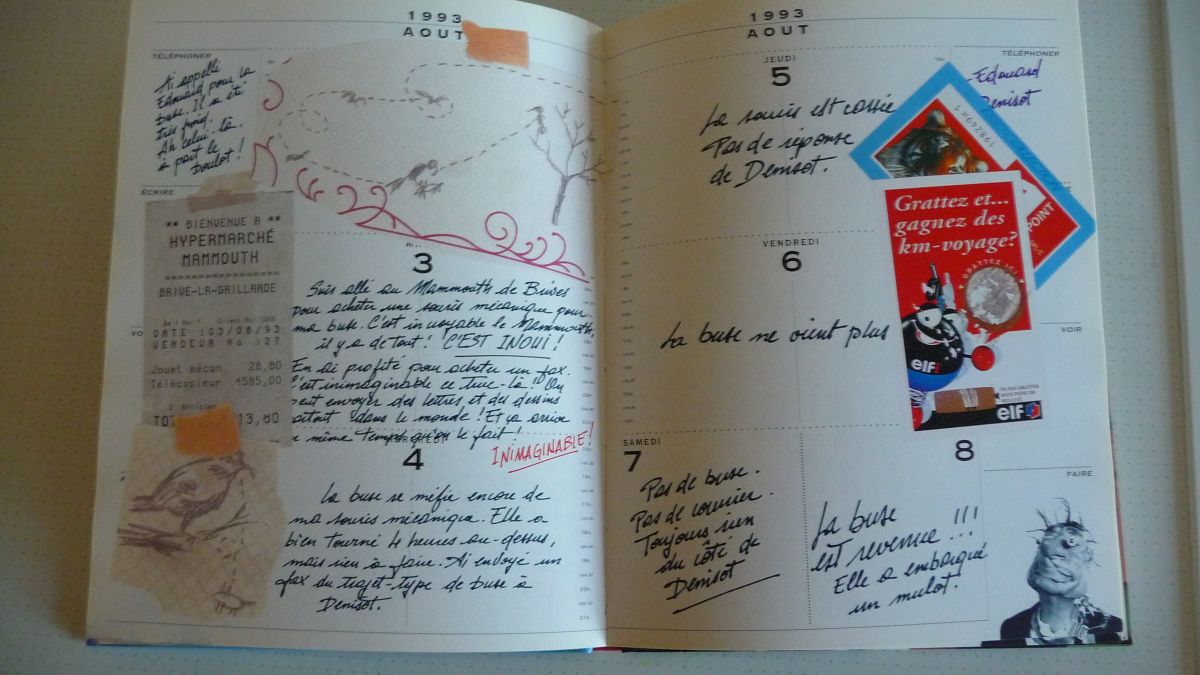 1993
AOUT
TÉLÉPHONER
Ai appelé
Edouard pour la
buse. Il a été
très froid.
Ah celui-là,
à part le
boulot!
ÉCRIRE
** BIENVENUE A **
HYPERMARCHÉ
MAMMOUTH
BRIVE-LA-GAILLARDE
DATE :03/08/93
VENDEUR No :27
Jouet mécan. 28,80
Télécopieur 4585,00
2 Articles
TOT 13,80
3
Suis allé au Mammouth de Brives
pour acheter une souris mécanique pour
ma buse. C'est incroyable le Mammouth,
il y a de tout! C'EST INOUI!
En ai profité pour acheter un fax.
C'est inimaginable ce truc-là! On
peut envoyer des lettres et des dessins
partout dans le monde! Et ça arrive
en même temps qu'on le fait!
INIMAGINABLE!
MERCREDI
4
La buse se méfie encore de
ma souris mécanique. Elle a
bien tourné 4 heures au-dessus,
mais rien à faire. Ai envoyé un
fax du trajet-type de buse à
Denisot.
1993
AOUT
JEUDI
5
La souris est cassée
Pas de réponse
de Denisot.
TÉLÉPHONER
Edouard
Denisot
19824H9
POINT
Grattez et...
gagnez des
km-voyage?
GRATTEZ ICI
elf
elf
VENDREDI
6
La buse ne vient plus
VOIR
SAMEDI
7
Pas de buse.
Pas de courrier.
Toujours rien
du côté de
Denisot
8
La buse
est revenue!!!
Elle a embarqué
un mulot.
FAIRE